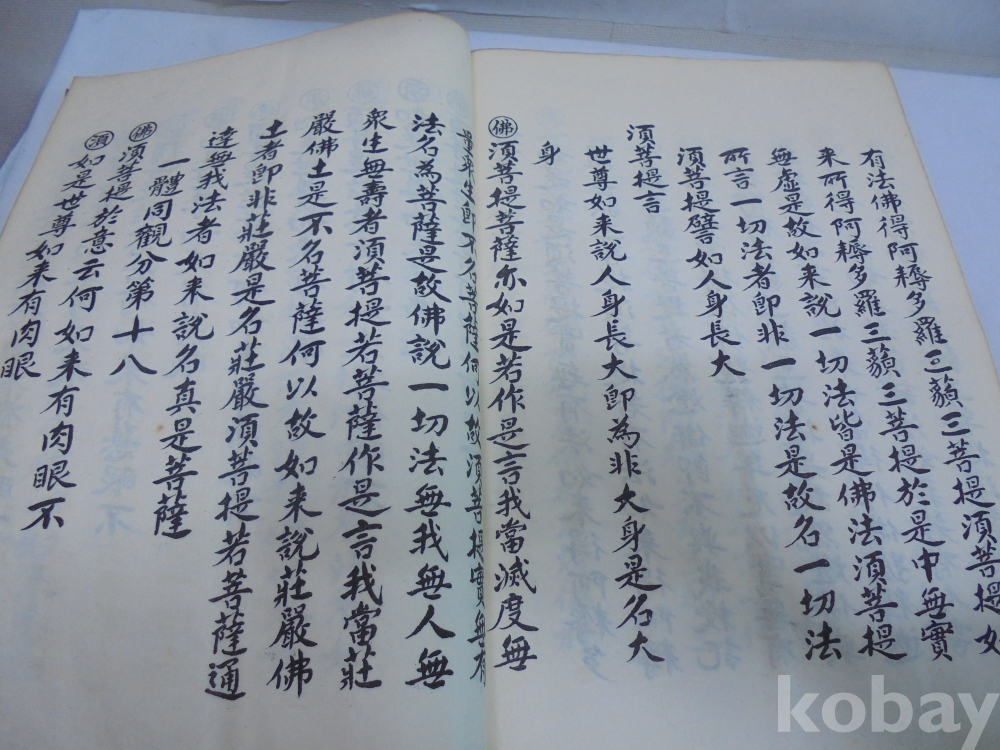 有法佛得阿耨多羅三藐三菩提須菩提如
来所得阿耨多羅三藐三菩提於是中無實
無虛是故如来說一切法皆是佛法須菩提
所言一切法者即非一切法是故名一切法
須菩提譬如人身長大
須菩提言
世尊如来說人身長大即為非大身是名大
身
佛 須菩提菩薩亦如是若作是言我當滅度無
量衆生即不名菩薩何以故須菩提實無有
法名為菩薩是故佛說一切法無我無人無
衆生無壽者須菩提若菩薩作是言我當莊
嚴佛土是不名菩薩何以故如来說莊嚴佛
土者即非莊嚴是名莊嚴須菩提若菩薩通
達無我法者如来說名真是菩薩
一體同觀分第十八
佛 須菩提於意云何如来有肉眼不
須 如是世尊如来有肉眼
kobay